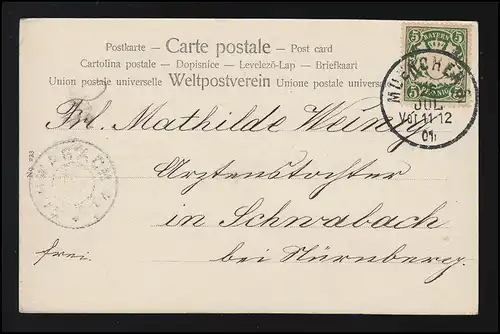 Postkarte – Carte postale – Post card
Cartolina postale – Dopisnice – Levelező-Lap – Briefkaart
Union postale universelle Weltpostverein Unione postale universale
5 BAYERN 5
MUENCHEN
JUL
Vor 11-12
01
Frl. Mathilde
Arztenstochter
in Schwabach
bei Nürnberg.
frei.
No. 233